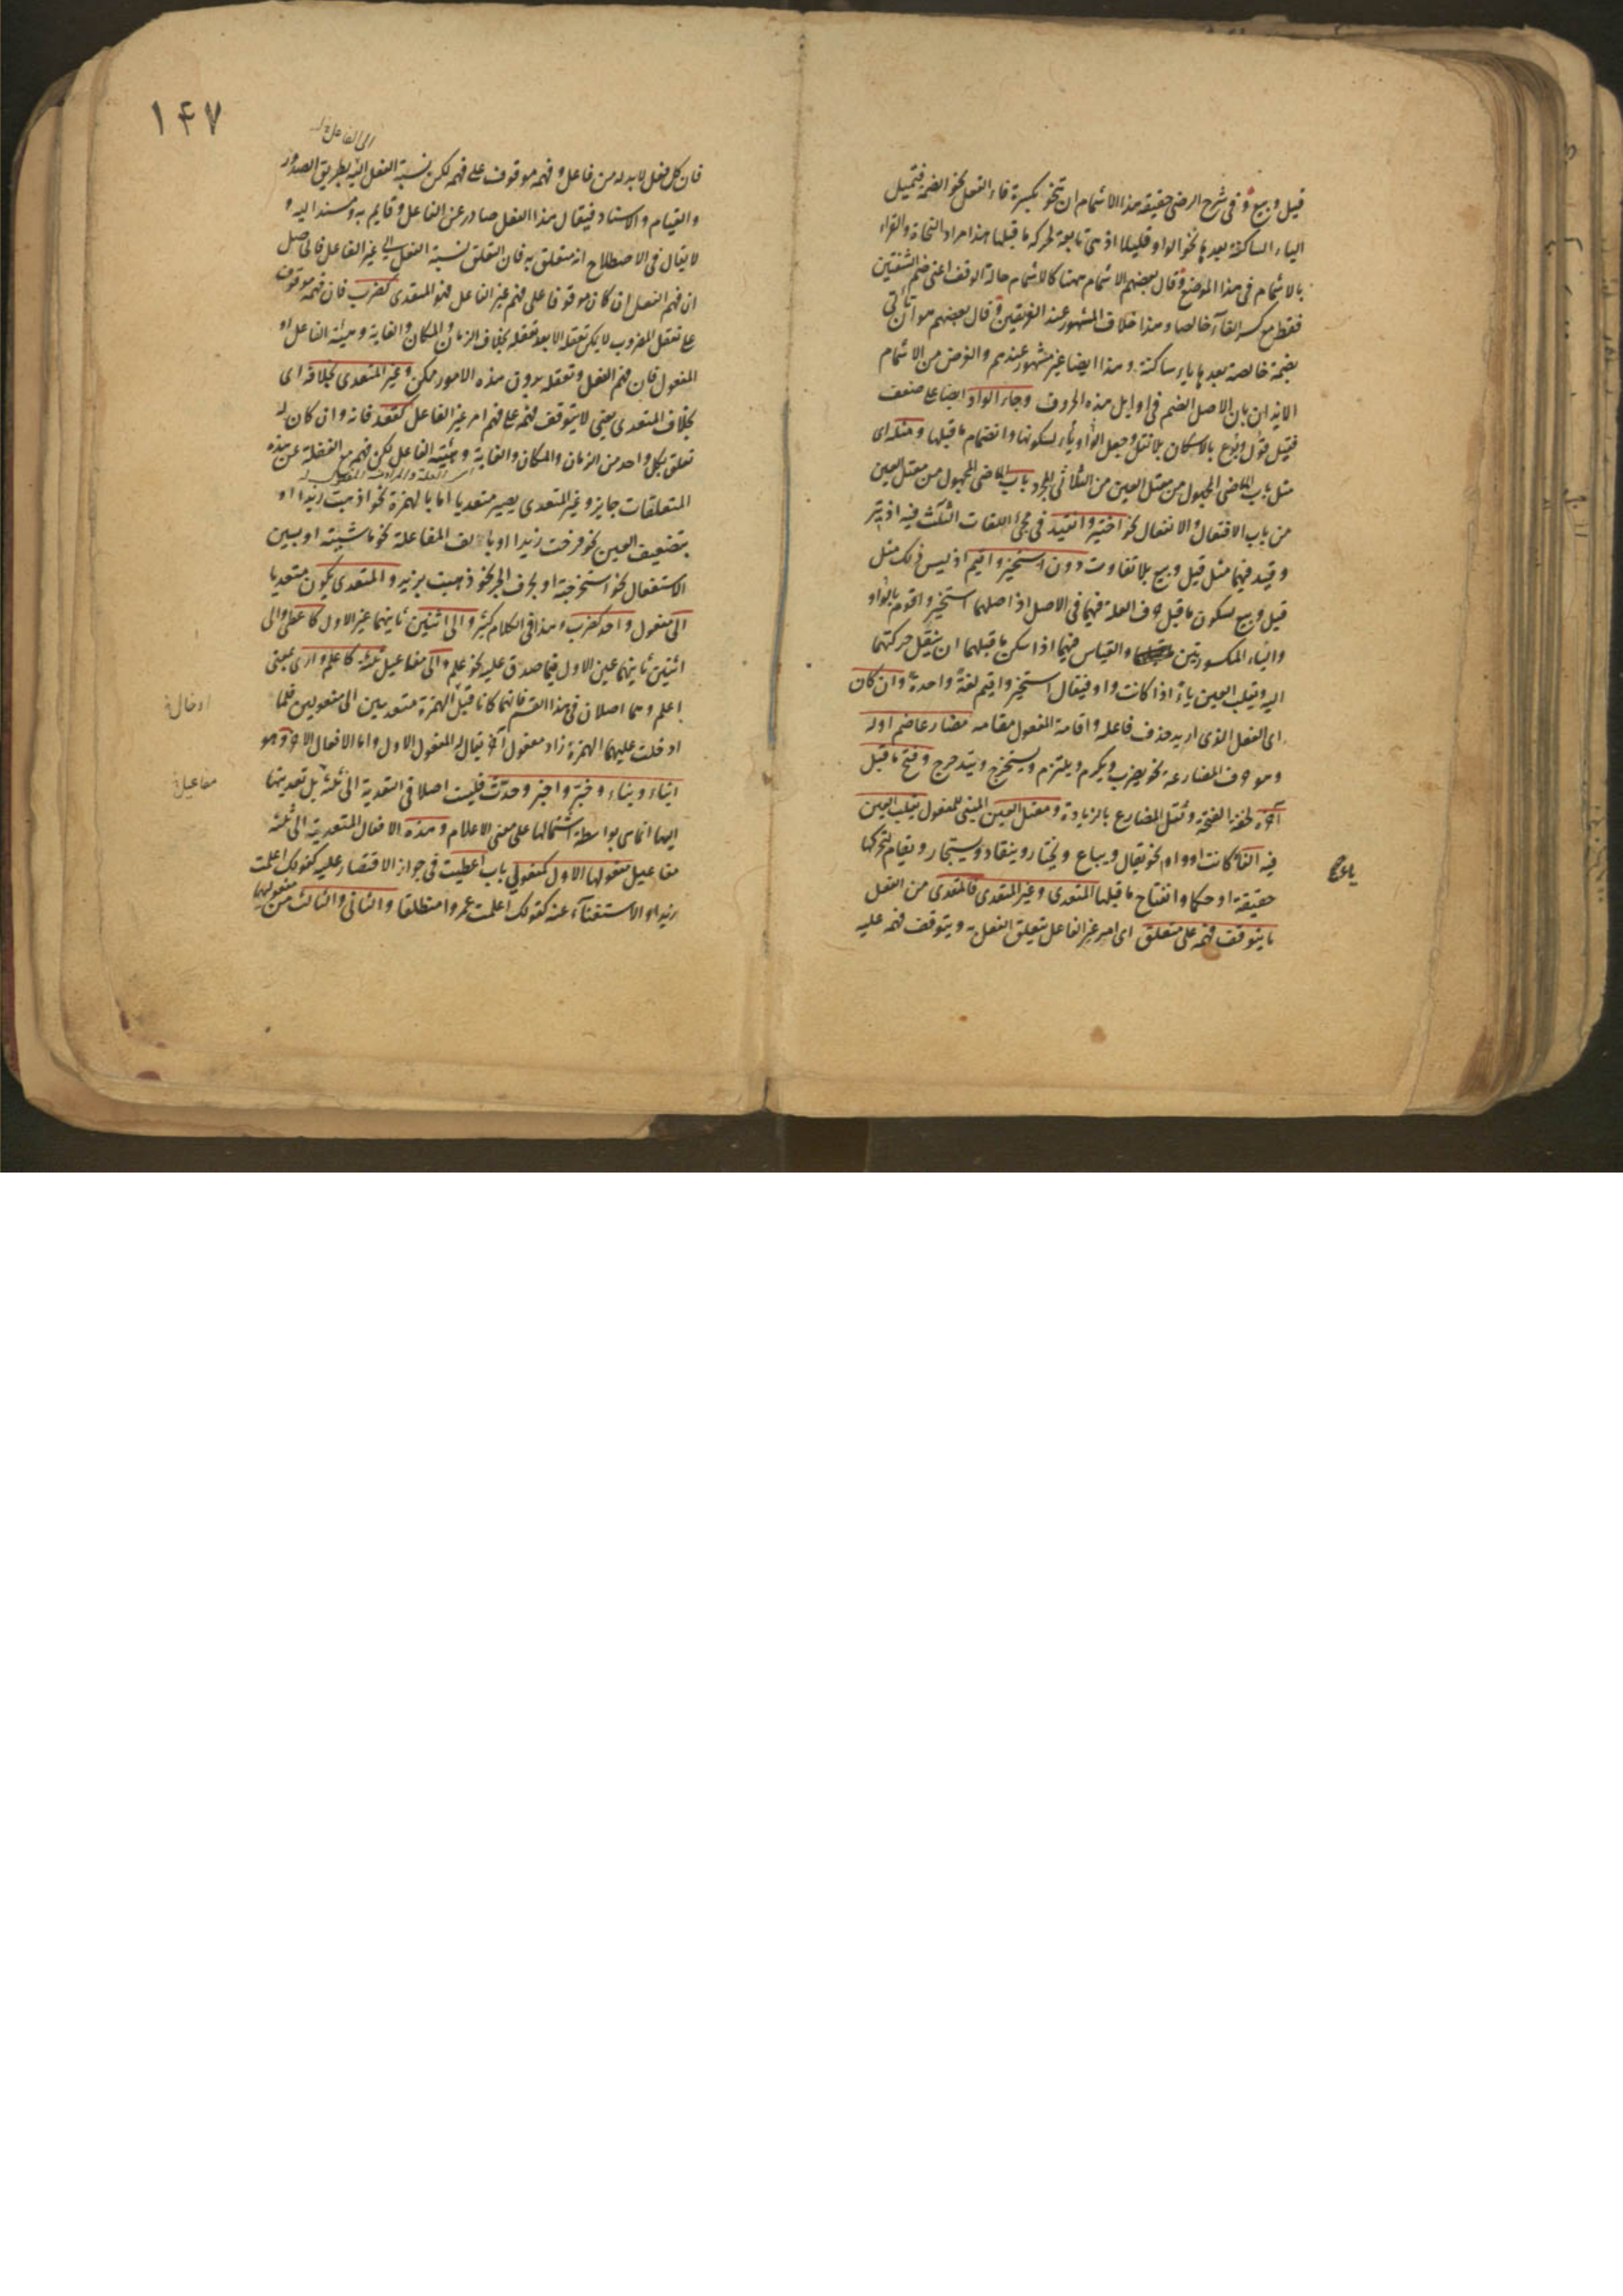 قيل وبيع وفى شرح الرضى حقيقة هذا الاشمام ان تنحو بكسرة فاء الفعل نحو الضمة فتميل
الياء الساكنة بعدها نحو الواو قليلا اذ هى تابعة لحركة ما قبلها هذا مراد النحاة والقراء
بالاشمام فى هذا الموضع وقال بعضهم الاشمام ههنا كالاشمام حالة الوقف اعنى ضم الشفتين
فقط مع كسر الفاء خالصا وهذا خلاف المشهور عند الفريقين وقال بعضهم هو ان تأتى
بضمة خالصة بعدها ياء ساكنة وهذا ايضا غير مشهور عندهم والغرض من الاشمام
الايذان بان الاصل الضم فى اوايل هذه الحروف وجاء الواو ايضا على ضعف
فقيل قول وبوع بالاسكان بلا نقل وجعل الواو ياء لسكونها وانضمام ما قبلها ومثله اى
مثل باب الماضى المجهول من معتل العين من الثلاثى المجرد باب الماضى المجهول من معتل العين
من باب الافتعال والانفعال نحو اختير وانقيد فى مجئ اللغات الثلث فيه اذ تير
وقيد فيهما مثل قيل وبيع بلا تفاوت دون استخير واقيم اذ ليس ذلك مثل
قيل وبيع لسكون ما قبل حرف العلة فيهما فى الاصل اذ اصلهما استخير واقوم بالواو
والياء المكسورتين والقياس فيهما اذا سكن ما قبلهما ان ينقل حركتهما
اليه ويقلب العين ياء اذا كانت واوا فيقال استخير واقيم لغة واحدة وان كان
اى الفعل الذى اريد حذف فاعله واقامة المفعول مقامه مضارعا ضم اوله
وهو حرف المضارعة نحو يضرب ويكرم ويلتزم ويستخرج ويتدحرج وفتح ما قبل
آخره لخفة الفتحة وثقل المضارع بالزيادة ومعتل العين المبنى للمفعول ينقلب العين
فيه الفا كانت او واوا نحو يقال ويباع ويختار وينقاد ويستجار ويقام لتحركها
حقيقة او حكما وانفتاح ما قبلها المتعدى وغير المتعدى فالمتعدى من الفعل
ما يتوقف فهمه على متعلق اى امر غير الفاعل يتعلق الفعل به ويتوقف فهمه عليه
١٤٧
الى الفاعل
فان كل فعل لا بد له من فاعل وفهمه موقوف على فهمه لكن نسبة الفعل اليه بطريق الصدور
والقيام والاسناد فيقال هذا الفعل صادر عن الفاعل وقايم به ومسند اليه و
لا يقال فى الاصطلاح انه متعلق به فان التعلق نسبة الفعل الى غير الفاعل فالحاصل
ان فهم الفعل ان كان موقوفا على فهم غير الفاعل فهو المتعدى كضرب فان فهمه موقوف
على تعقل المضروب لا يمكن تعقله الا بعد تعقله بخلاف الزمان والمكان والغاية وهيئة الفاعل او
المفعول فان فهم الفعل وتعقله بدون هذه الامور ممكن وغير المتعدى بخلافه اى
بخلاف المتعدى يعنى لا يتوقف فهمه على فهم امر غير الفاعل كقعد فانه وان كان له
تعلق بكل واحد من الزمان والمكان والغاية وهيئة الفاعل لكن فهمه مع الغفلة عن هذه
المتعلقات جايز وغير المتعدى يصير متعديا اما بالهمزة نحو اذهبت زيدا او
بتضعيف العين نحو فرحت زيدا او بالف المفاعلة نحو ماشيته او بسين
الاستفعال نحو استخرجته او بحرف الجر نحو ذهبت بزيد والمتعدى يكون متعديا
الى مفعول واحد كضرب وهذا فى الكلام كثير والى اثنين ثانيهما غير الاول كاعطى والى
اثنين ثانيهما عين الاول فيما صدق عليه نحو علم والى مفاعيل ثلثة كاعلم وارى بمعنى
اعلم وهما اصلان فى هذا القسم فانهما كانا قبل الهمزة متعديين الى مفعولين فلما
ادخلت عليهما الهمزة زاد مفعول آخر يقال له المفعول الاول واما الافعال الاخر وهو
انباء ونباء وخبر واخبر وحدث فليست اصلا فى التعدية الى ثلثة بل تعديتها
اليها انما هى بواسطة اشتمالها على معنى الاعلام وهذه الافعال المتعدية الى ثلثة
مفاعيل مفعولها الاول كمفعولى باب اعطيت فى جواز الاقتصار عليه كقولك اعلمت
زيدا والاستغناء عنه كقولك اعلمت عمروا منطلقا والثانى والثالث من مفعوليها
ادخال
مفاعيل